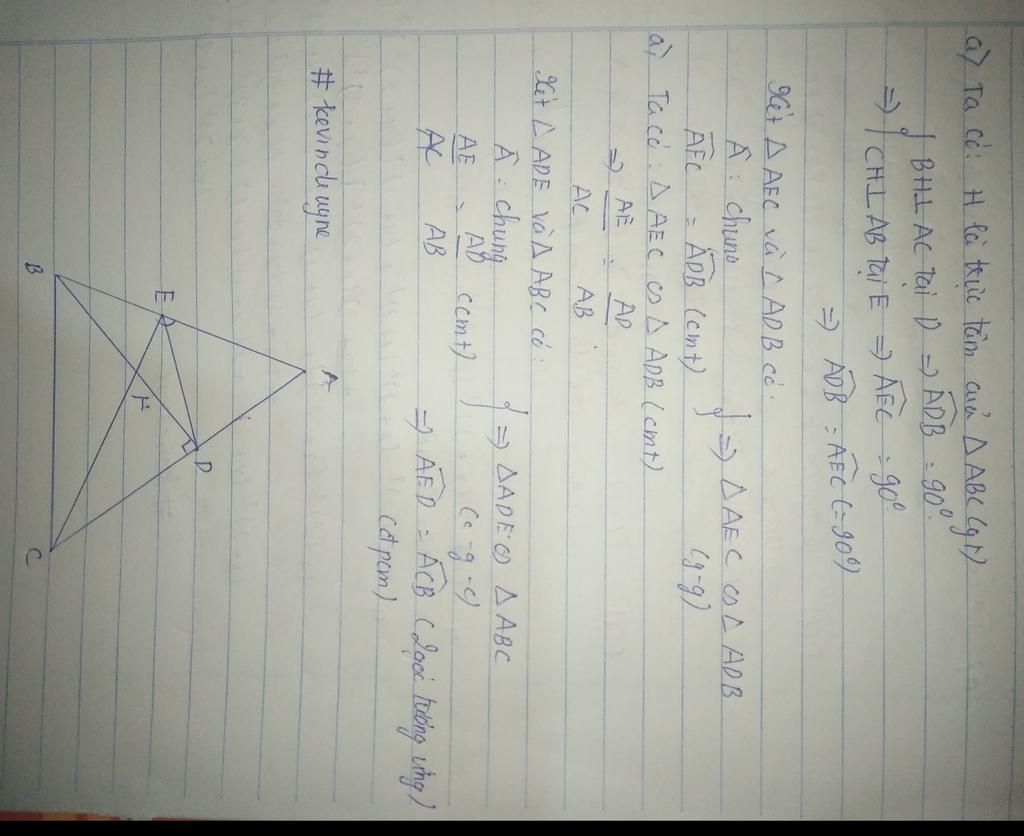 a) Ta có: H là trực tâm của △ABC (gt)
=> { BH⊥AC tại D => ADB = 90°
CH⊥AB tại E => AEC = 90°
=> ADB = AEC (=90°)
Xét △AEC và △ADB có:
A : chung
AEC = ADB (cmt)
} => △AEC ∽ △ADB
(g-g)
a) Ta có: △AEC ∽ △ADB (cmt)
=> AE/AC = AD/AB
Xét △ADE và △ABC có:
A : chung
AE/AC = AD/AB (cmt)
} => △ADE ∽ △ABC
(c-g-c)
=> AED = ACB (2 góc tương ứng)
(đpcm)
# kevinduyne
A
E
D
H
B
C